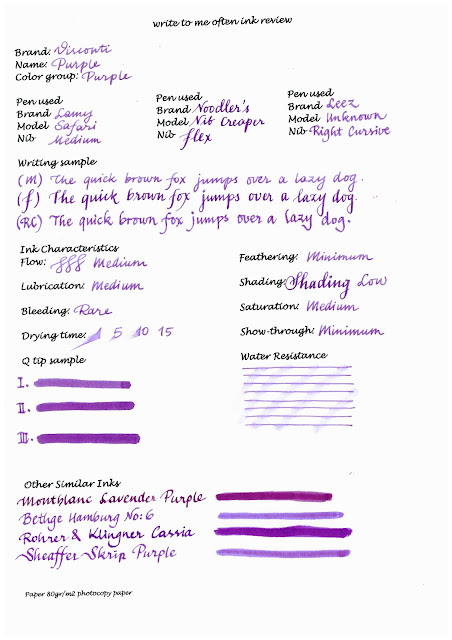 write to me often ink review
Brand: Visconti
Name: Purple
Color group: Purple
Pen used
Brand Lamy
Model Safari
Nib Medium
Pen used
Brand Noodler's
Model Nib Creaper
Nib flex
Pen used
Brand Leez
Model Unknown
Nib Right Cursive
Writing sample
(M) The quick brown fox jumps over a lazy dog.
(f) The quick brown fox jumps over a lazy dog.
(RC) The quick brown fox jumps over a lazy dog.
Ink Characteristics
Flow: fff Medium
Lubrication: Medium
Bleeding: Rare
Drying time: 5 10 15
Feathering: Minimum
Shading: Shading Low
Saturation: Medium
Show-through: Minimum
Q tip sample
I.
II.
III.
Water Resistance
Other Similar Inks
Montblanc Lavender Purple
Bethge Hamburg No: 6
Rohrer & Klingner Cassia
Sheaffer Skrip Purple
Paper 80gr/m2 photocopy paper